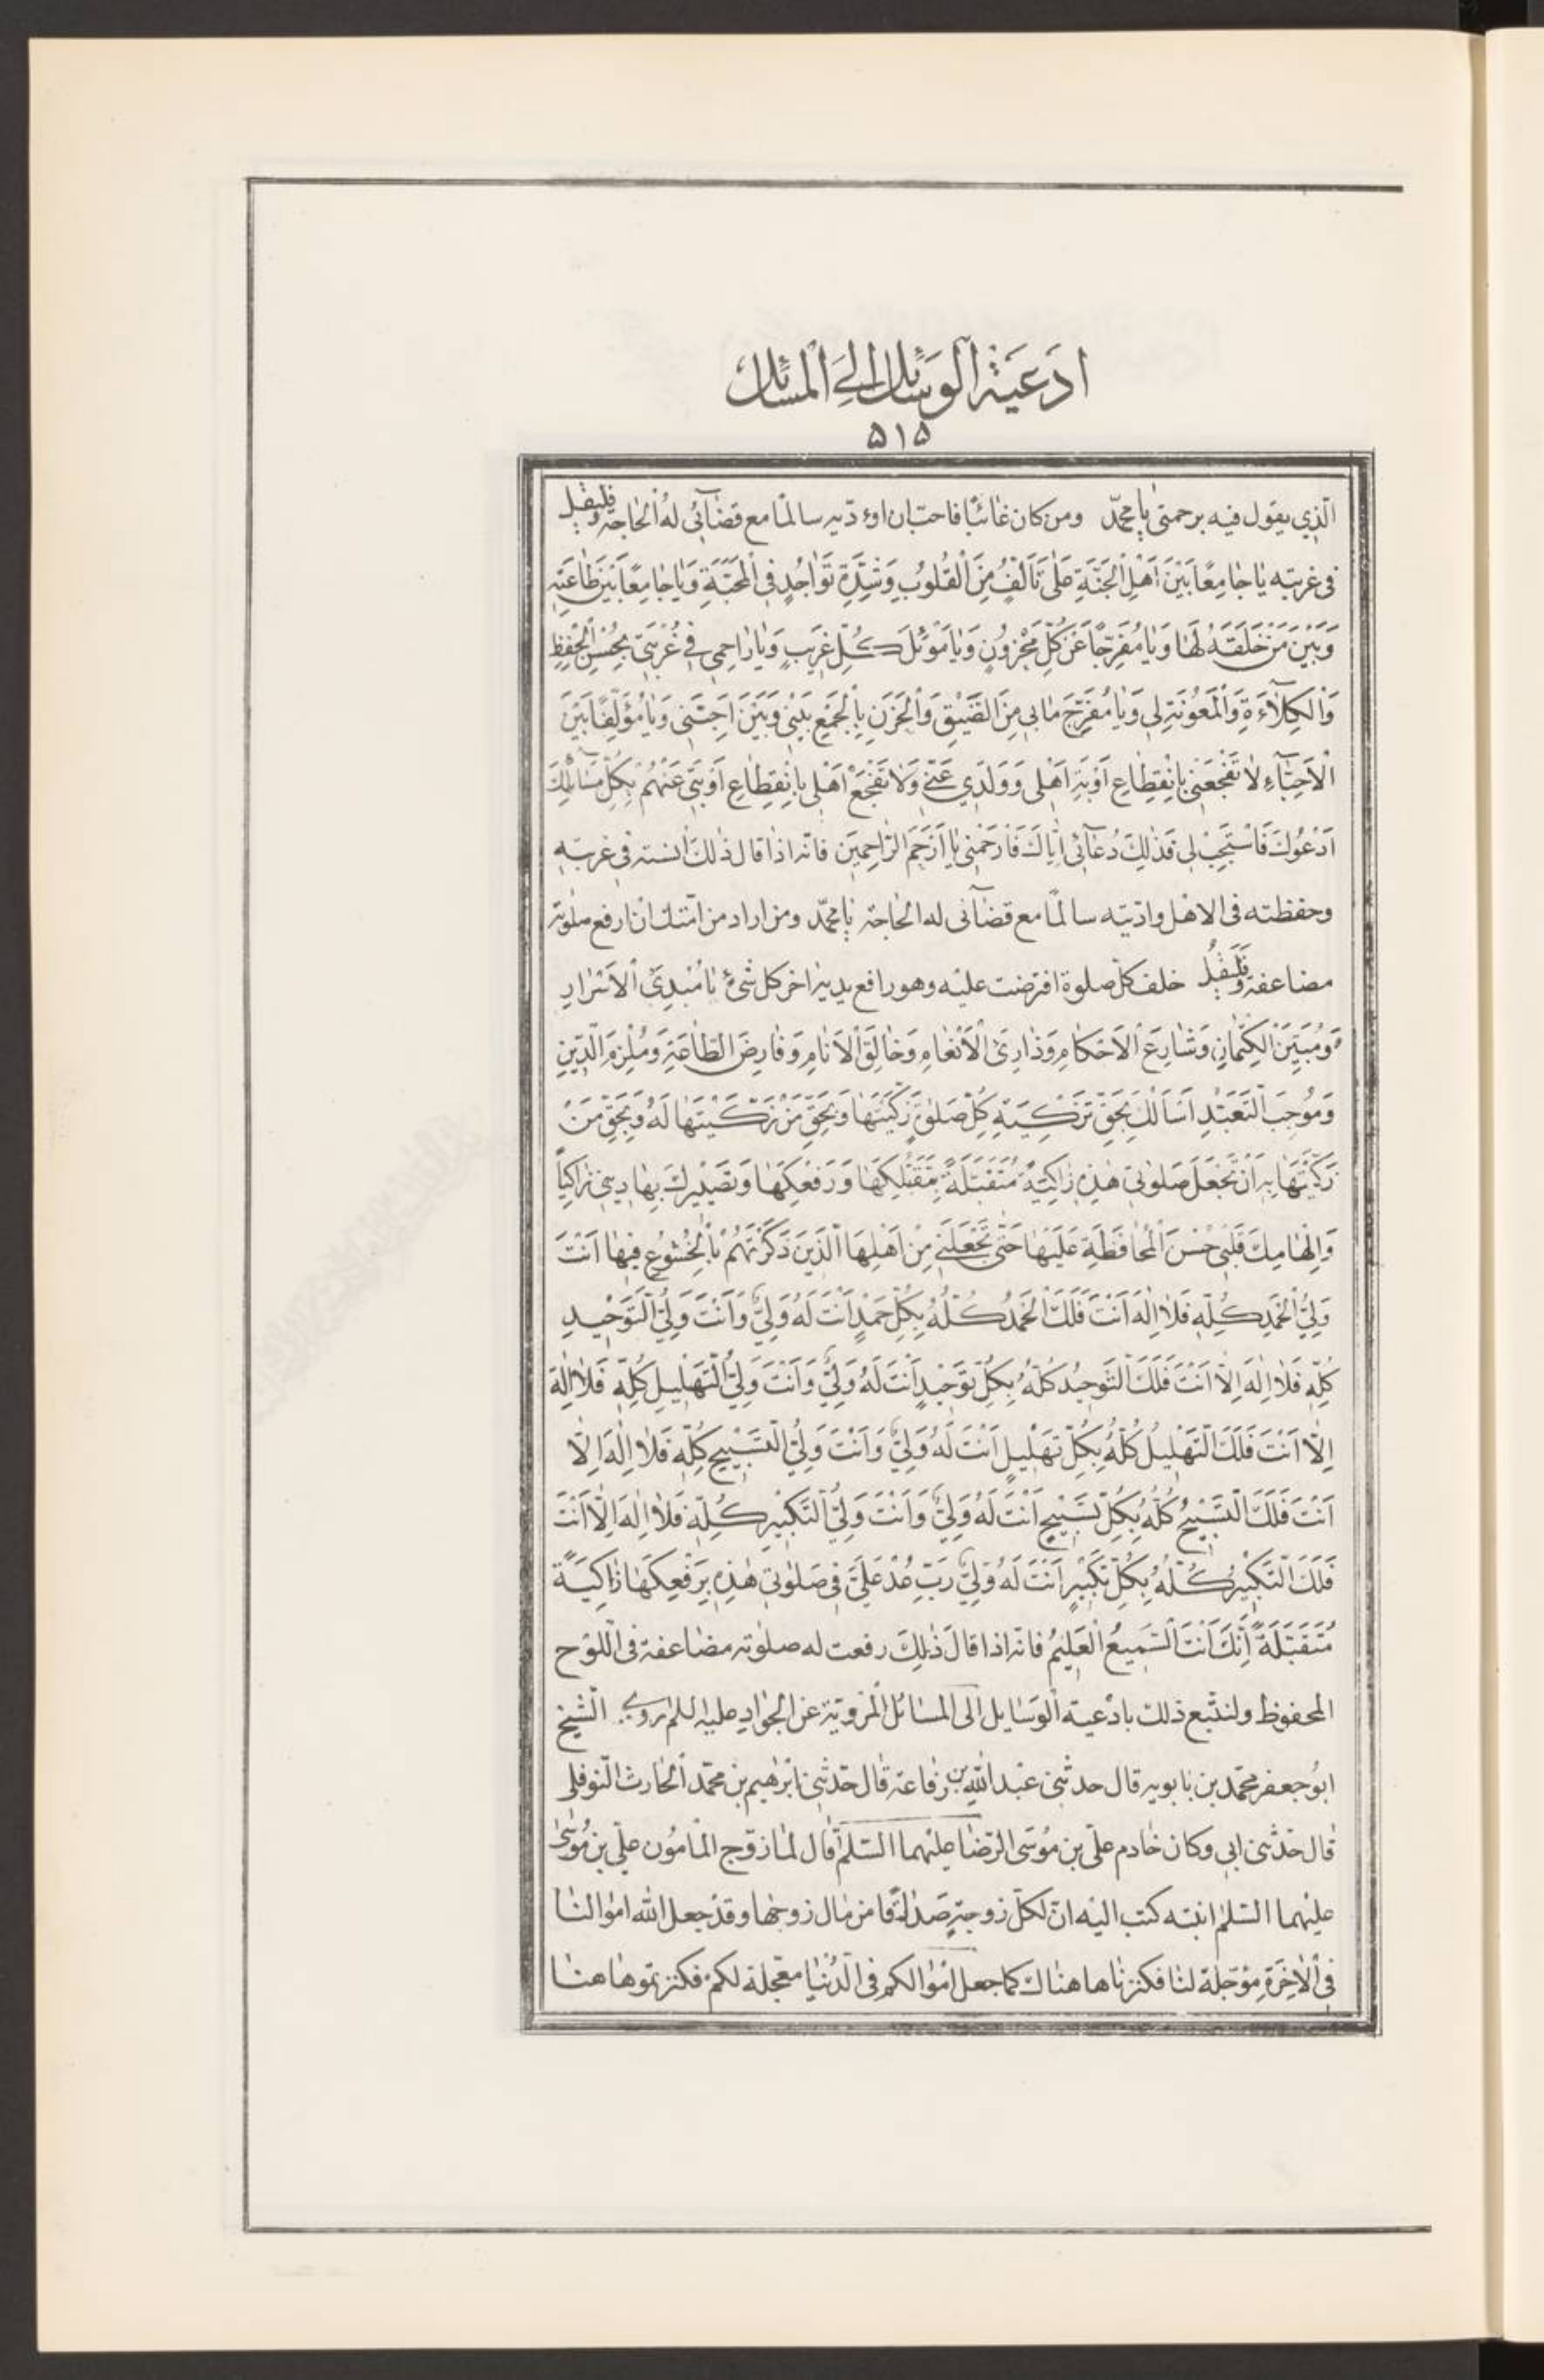 ادعية الوسائل الى المسائل
٥١٥
الّذي يقول فيه برحمتى يا محمّد ومن كان غائبًا فاحبّ ان اودّيه سالمًا مع قضآئى له الحاجة فليقل
فى غربته يا جامِعًا بَيْنَ اَهْلِ الْجَنَّةِ عَلى تَاَلُّفٍ مِنَ الْقُلُوبِ وَشِدَّةِ تَواجُدٍ فِى الْمَحَبَّةِ وَيا جامِعًا بَيْنَ طاعَتِهِ
وَبَيْنَ مَنْ خَلَقَهُ لَها وَيا مُفَرِّجًا عَنْ كُلِّ مَحْزُونٍ وَيا مَوْئِلَ كُلِّ غَرِيبٍ وَيا راحِمِى فِى غُرْبَتِى بِحُسْنِ الْحِفْظِ
وَالْكِلآءَةِ وَالْمَعُونَةِ لِى وَيا مُفَرِّجَ ما بِى مِنَ الضِّيْقِ وَالْحُزْنِ بِالْجَمْعِ بَيْنِى وَبَيْنَ اَحِبَّتِى وَيا مُؤَلِّفًا بَيْنَ
الْاَحِبَّآءِ لا تَفْجَعْنِى بِانْقِطاعِ اَوْبَةِ اَهْلِى وَوَلَدِي عَنِّى وَلا تَفْجَعْ اَهْلِى بِانْقِطاعِ اَوْبَتِى عَنْهُمْ بِكُلِّ مَسآئِلِكَ
اَدْعُوكَ فَاسْتَجِبْ لِى فَذلِكَ دُعآئِى اِيّاكَ فَارْحَمْنِى يا اَرْحَمَ الرّاحِمِينَ فانّه اذا قال ذلك انسته فى غربته
وحفظته فى الاهل وادّيته سالمًا مع قضآئى له الحاجة يا محمّد ومن اراد من امّتك ان ارفع صلوته
مضاعفة فليقل خلف كلّ صلوة افترضت عليه وهو رافع يديه اخر كل شىء يا مُبْدِىَ الْاَسْرارِ
وَمُبَيِّنَ الْكِتْمانِ وَشارِعَ الْاَحْكامِ وَذارِىَ الْاَنْعامِ وَخالِقَ الْاَنامِ وَفارِضَ الطّاعَةِ وَمُلْزِمَ الدِّينِ
وَمُوجِبَ التَّعَبُّدِ اَسْاَلُكَ بِحَقِّ تَزْكِيَتِهِ كُلِّ صَلوةٍ زَكَّيْتَها وَبِحَقِّ مَنْ زَكَّيْتَها لَهُ وَبِحَقِّ مَنْ
زَكَّيْتَها بِهِ اَنْ تَجْعَلَ صَلوتِى هذِهِ زاكِيَةً مُتَقَبَّلَةً بِتَقَبُّلِكَها وَرَفْعِكَها وَتَصْيِيرِكَ بِها دِينِى زاكِيًا
وَاِلْهامِكَ قَلْبِى حُسْنَ الْمُحافَظَةِ عَلَيْها حَتّى تَجْعَلَنِى مِنْ اَهْلِهَا الَّذِينَ ذَكَرْتَهُمْ بِالْخُشُوعِ فِيها اَنْتَ
وَلِىُّ الْحَمْدِ كُلِّهِ فَلا اِلهَ اَنْتَ فَلَكَ الْحَمْدُ كُلُّهُ بِكُلِّ حَمْدٍ اَنْتَ لَهُ وَلِىٌّ وَاَنْتَ وَلِىُّ التَّوْحِيدِ
كُلِّهِ فَلا اِلهَ اِلّا اَنْتَ فَلَكَ التَّوْحِيدُ كُلُّهُ بِكُلِّ تَوْحِيدٍ اَنْتَ لَهُ وَلِىٌّ وَاَنْتَ وَلِىُّ التَّهْلِيلِ كُلِّهِ فَلا اِلهَ
اِلّا اَنْتَ فَلَكَ التَّهْلِيلُ كُلُّهُ بِكُلِّ تَهْلِيلٍ اَنْتَ لَهُ وَلِىٌّ وَاَنْتَ وَلِىُّ التَّسْبِيحِ كُلِّهِ فَلا اِلهَ اِلّا
اَنْتَ فَلَكَ التَّسْبِيحُ كُلُّهُ بِكُلِّ تَسْبِيحٍ اَنْتَ لَهُ وَلِىٌّ وَاَنْتَ وَلِىُّ التَّكْبِيرِ كُلِّهِ فَلا اِلهَ اِلّا اَنْتَ
فَلَكَ التَّكْبِيرُ كُلُّهُ بِكُلِّ تَكْبِيرٍ اَنْتَ لَهُ وَلِىٌّ رَبِّ عُدْ عَلَىَّ فِى صَلوتِى هذِهِ بِرَفْعِكَها زاكِيَةً
مُتَقَبَّلَةً اِنَّكَ اَنْتَ السَّمِيعُ الْعَلِيمُ فانّه اذا قالَ ذلِكَ رفعت له صلوته مضاعفة فى اللّوح
المحفوظ ولنتبع ذلك بادعية الوسايل الى المسائل المرويّة عن الجواد عليه السلم روى الشّيخ
ابو جعفر محمّد بن بابويه قال حدثنى عبد اللّه بن رفاعة قال حدّثنى ابرهيم بن محمّد الحارث النّوفلى
قال حدّثنى ابى وكان خادم علىّ بن موسى الرّضا عليهما السّلم قال لمّا زوّج المامون علىّ بن موسى
عليهما السّلم ابنته كتب اليه انّ لكلّ زوجة صداقًا من مال زوجها وقد جعل اللّه اموالنا
فى الاخرة مؤجّلة لنا فكنزناها هناك كما جعل اموالكم فى الدّنيا معجّلة لكم فكنزتموها هنا